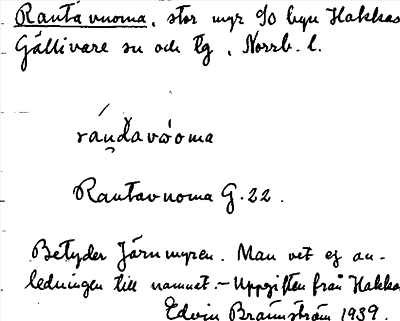 Rautavuoma, stor myr SO byn Hakkas
Gällivare sn och tg, Norrb. l.
ráu̯davu̯oma
Rautavuoma G. 22.
Betyder Järnmyren. Man vet ej an-
ledningen till namnet. - Uppgiften från Hakkas
Edvin Brännström 1939.